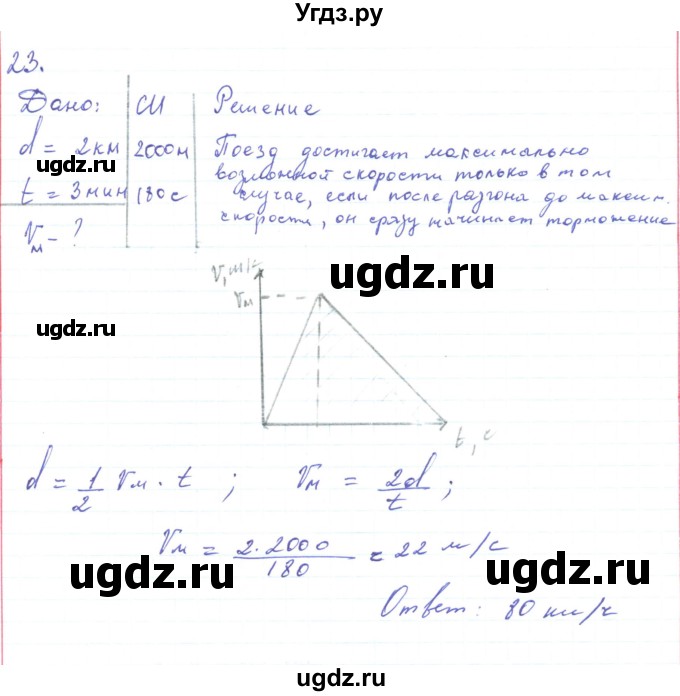 Угдз.ру
23.
Дано: СИ Решение
d = 2км 2000м Поезд достигает максимально
возможной скорости только в том
t = 3мин 180с случае, если после разгона до максим.
скорости, он сразу начинает торможение
Vм - ?
ugdz.ru
ugdz.ru
ugdz.ru
V, м/с
Vм
ugdz.ru
ugdz.ru
t, с
d = 1/2 Vм · t ; Vм = 2d/t ;
ugdz.ru
ugdz.ru
Vм = 2·2000/180 = 22 м/с
ugdz.ru
ugdz.ru
ugdz.ru
Ответ: 80 км/ч
ugdz.ru
ugdz.ru